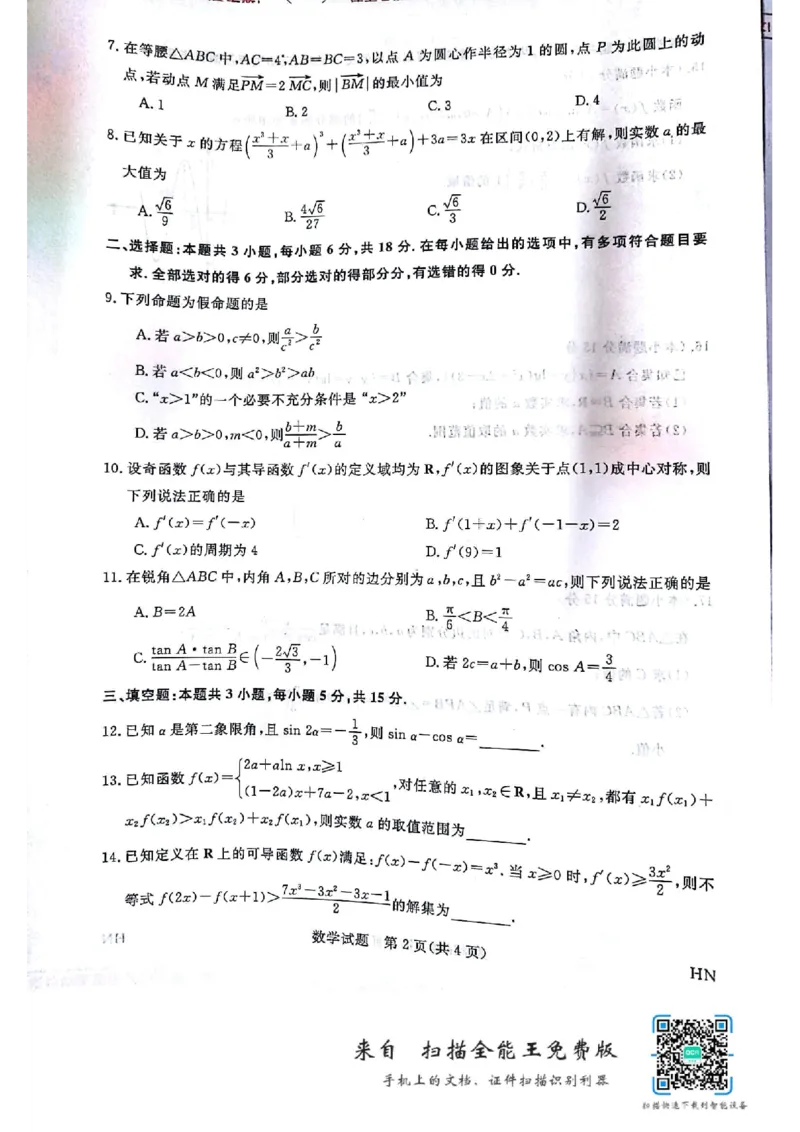 7.在等腰△ABC中,AC=4,AB=BC=3,以点 A 为圆心作半径为 1 的圆,点 P 为此圆上的动
点,若动点 M 满足PM=2 MC,则|BM|的最小值为
A. 1 B. 2 C. 3 D. 4
8.已知关于 x 的方程((x³+x)/3+a)³+((x³+x)/3+a)+3a=3x 在区间(0,2)上有解,则实数 a 的最
大值为
A. √6/9 B. 4√6/27 C. √6/3 D. √6/2
二、选择题:本题共 3 小题,每小题 6 分,共 18 分. 在每小题给出的选项中,有多项符合题目要
求. 全部选对的得 6 分,部分选对的得部分分,有选错的得 0 分.
9.下列命题为假命题的是
A. 若 a>b>0,c≠0,则a/c²>b/c²
B. 若 a<b<0,则 a²>b²>ab
C. “x>1”的一个必要不充分条件是“x>2”
D. 若 a>b>0,m<0,则(b+m)/(a+m)>b/a
10. 设奇函数 f(x)与其导函数 f′(x)的定义域均为 R,f′(x)的图象关于点(1,1)成中心对称,则
下列说法正确的是
A. f′(x)=f′(-x) B. f′(1+x)+f′(-1-x)=2
C. f′(x)的周期为 4 D. f′(9)=1
11. 在锐角△ABC 中,内角 A,B,C 所对的边分别为 a,b,c,且 b²-a²=ac,则下列说法正确的是
A. B=2A B. π/6<B<π/4
C. (tan A·tan B)/(tan A-tan B)∈(-2√3/3,-1) D. 若 2c=a+b,则 cos A=3/4
三、填空题:本题共 3 小题,每小题 5 分,共 15 分.
12. 已知 α 是第二象限角,且 sin 2α=-1/3,则 sin α-cos α=______.
13. 已知函数 f(x)={2a+aln x,x≥1
(1-2a)x+7a-2,x<1 ,对任意的 x₁,x₂∈R,且 x₁≠x₂,都有 x₁f(x₁)+
x₂f(x₂)>x₁f(x₂)+x₂f(x₁),则实数 a 的取值范围为______.
14. 已知定义在 R 上的可导函数 f(x)满足:f(x)-f(-x)=x³. 当 x≥0 时,f′(x)≥3x²/2,则不
等式 f(2x)-f(x+1)>(7x³-3x²-3x-1)/2的解集为______.
数学试题 第 2 页(共 4 页)
HN
来自 扫描全能王免费版
手机上的文档、证件扫描识别利器
扫描快速下载到智能设备